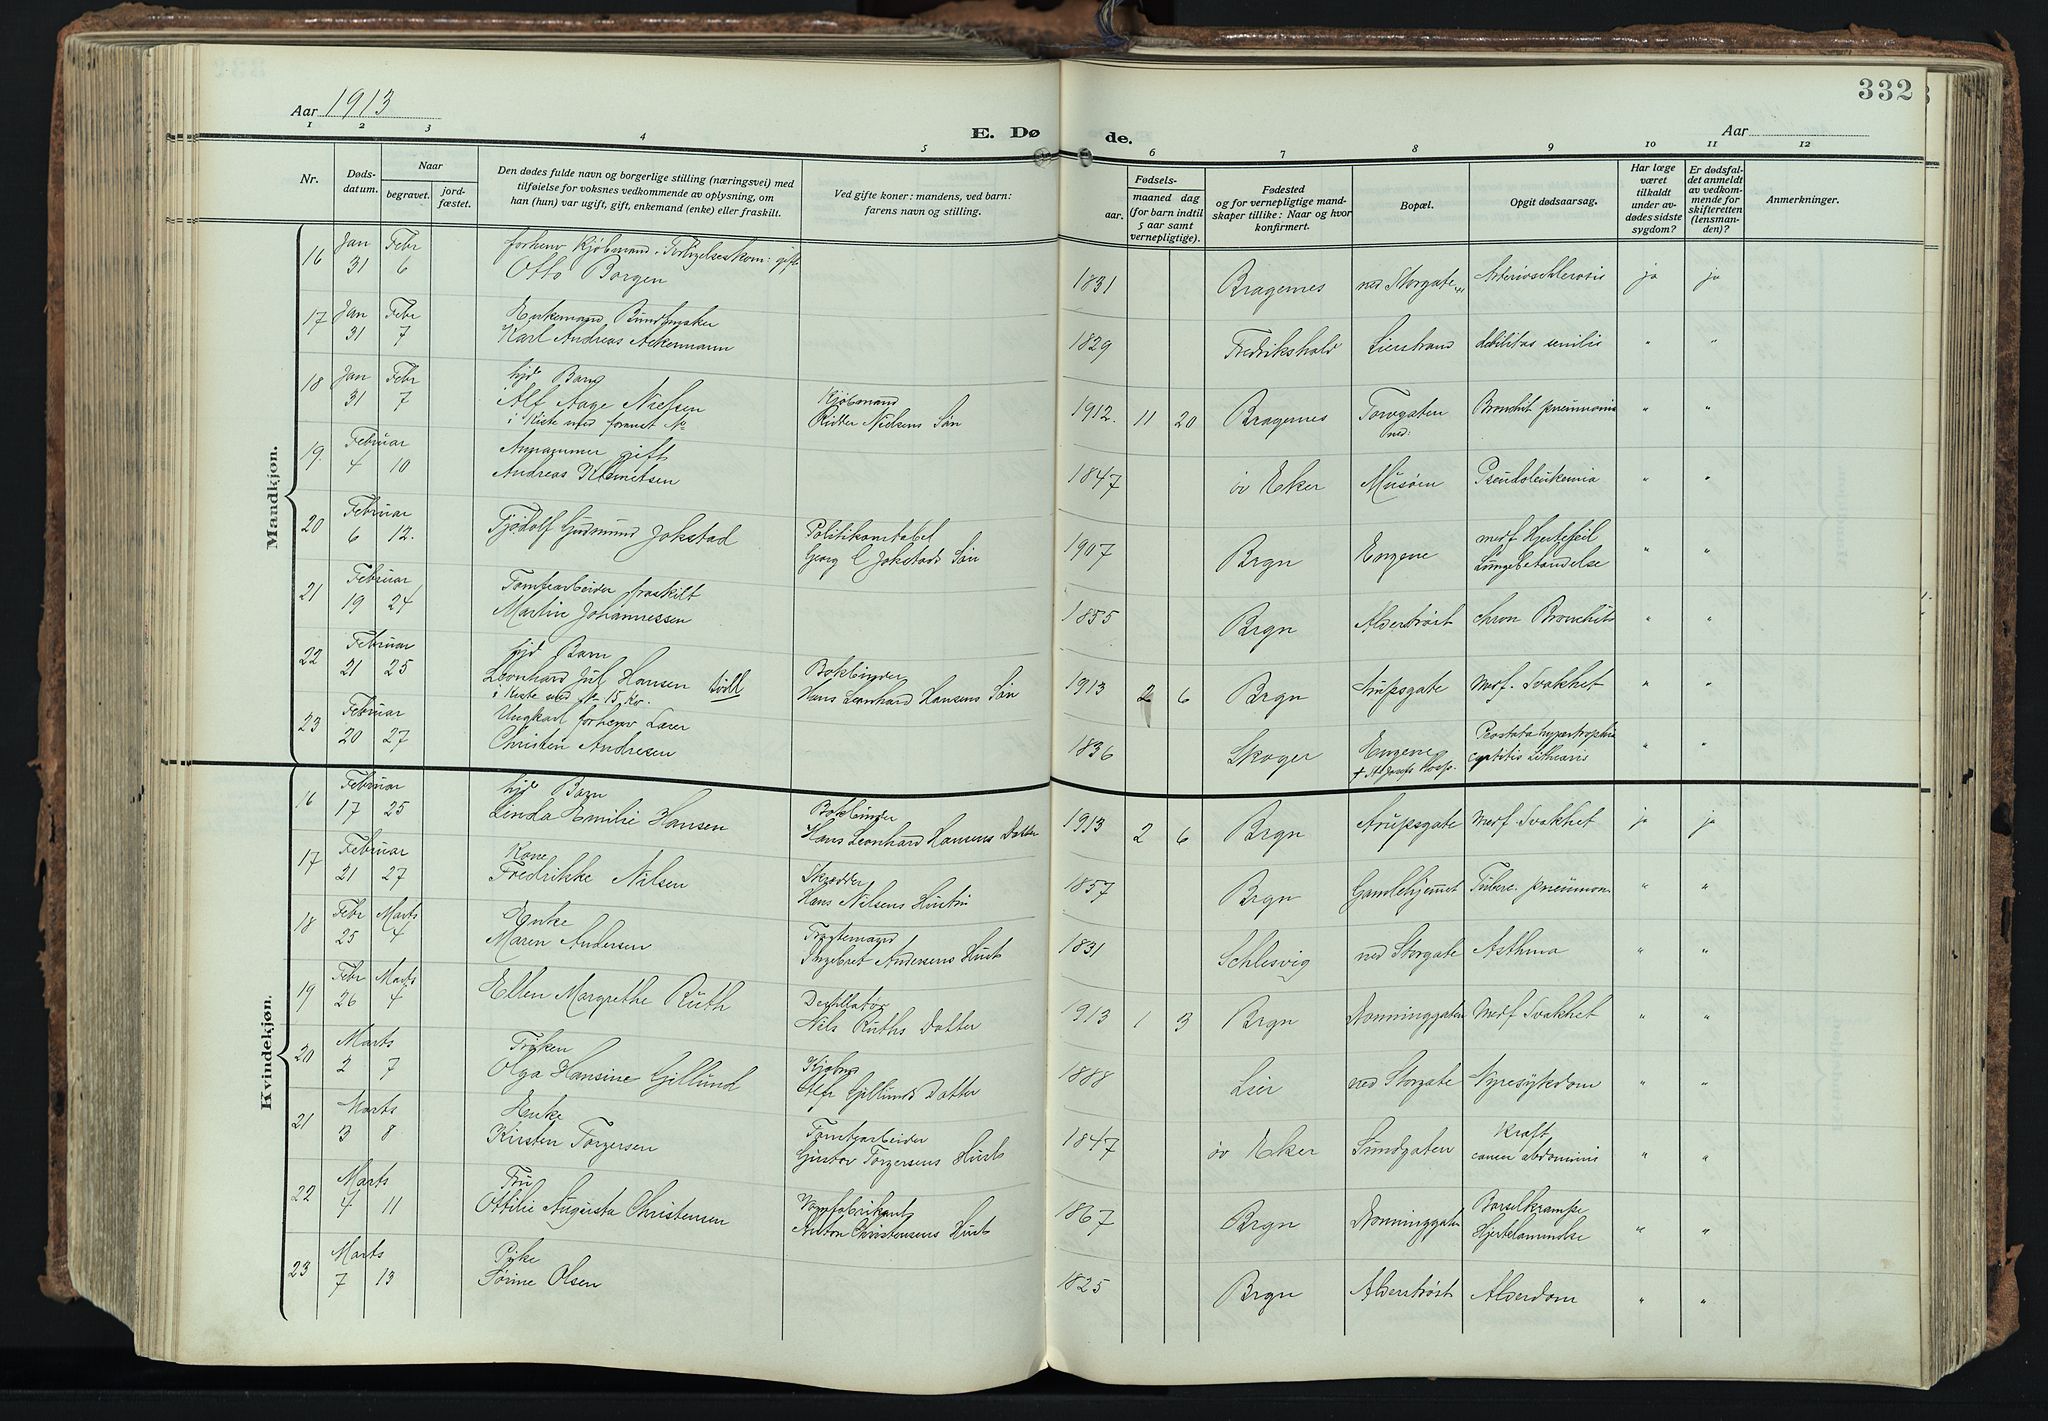 332
Aar 1913
E. Dø de.
Aar
1 2 3 4 5 6 7 8 9 10 11 12
Nr.
Døds-
datum.
Naar
begravet.
jord-
fæstet.
Den dødes fulde navn og borgerlige stilling (næringsvei) med
tilføielse for voksnes vedkommende av oplysning, om
han (hun) var ugift, gift, enkemand (enke) eller fraskilt.
Ved gifte koner: mandens, ved barn:
farens navn og stilling.
Fødsels-
aar.
maaned dag
(for barn indtil
5 aar samt
vernepligtige).
Fødested
og for vernepligtige mand-
skaper tillike: Naar og hvor
konfirmert.
Bopæl.
Opgit dødsaarsag.
Har læge
været
tilkaldt
under av-
dødes sidste
sygdom?
Er dødsfal-
det anmeldt
av vedkom-
mende for
skifteretten
(lensman-
den)?
Anmerkninger.
Mandkjøn.
16 Jan 31 Febr 6 forhenv Kjøbmand, gift
Otto Borgen 1831 Bragernes ned Storgate Arteriosclerosis ja ja
17 Jan 31 Febr 7 Enkemand Bundtmaker
Karl Andreas Ackermann 1829 Fredrikshald Lierstrand debilitas senilis " "
18 Jan 31 Febr 7 Barn
Alf Aage Nielsen Kjøbmand
i Kiste med Nielsens Søn 1912. 11 20 Bragernes Torvgaten ned: Bronchit pneumonia " "
19. Februar 4 10 gift
Andreas Klemetsen 1847 øv Eker Musøen Pseudoleukemia " "
20 Februar 6 12. Tjodolf Gudmund Jokstad Politikonstabel
Georg Jokstads Søn 1907 Brgn Engene medf Hjertefeil
Lungebetændelse " "
21 Februar 19 24 Tomtearbeider fraskilt
Martin Johannessen 1855 Brgn Alderstrøst chron Bronchit " "
22 Februar 21 25 Barn
Leonhard Jul Hansen tvill Bokbinder
i Kiste med Nr. 15 Kv. Hans Leonhard Hansens Søn 1913 2 6 Brgn Arupsgate Medf. Svakhet " "
23 Februar 20 27 Ungkarl forhenv Lærer
Christen Andresen 1836 Skoger Engene
Prostata hypertrophie " "
Kvindekjøn.
16 Februar 17 25 Barn
Linda Emilie Hansen Bokbinder
Hans Leonhard Hansens Datter 1913 2 6 Brgn Arupsgate Medf Svakhet ja ja
17 Februar 21 27 Kone
Fredrikke Nilsen Skrædder
Hans Nilsens Hustru 1857 Brgn Gamlehjemmet Tuberc. pneumon. " "
18 Febr 25 Marts 4 Enke
Maren Andersen
Ingebret Andersens Hust 1831 Schlesvig ned Storgate Asthma " "
19 Febr 26 Marts 4 Ellen Margrethe Ruth Destillatør
Nils Ruths Datter 1913 1 3 Brgn Konninggaten Medf Svakhet " "
20 Marts 2 7 Frøken
Olga Hansine Gjillund Kjøbm
Gjillunds Datter 1888 Lier ned Storgate Nyresykdom " "
21 Marts 3 8 Enke
Kirsten Torgersen Tomtearbeider
Gustav Torgersens Hust 1847 øv Eker Sundgaten Kræft,
cancer abdominis " "
22 Marts 4 11 Fru
Ottilie Augusta Christensen
Anton Christensens Hust 1867 Brgn Konninggaten Barselkrampe
Hjertelammelse " "
23 Marts 7 13 Pike
Sørine Olsen 1825 Brgn Alderstrøst Alderdom " "